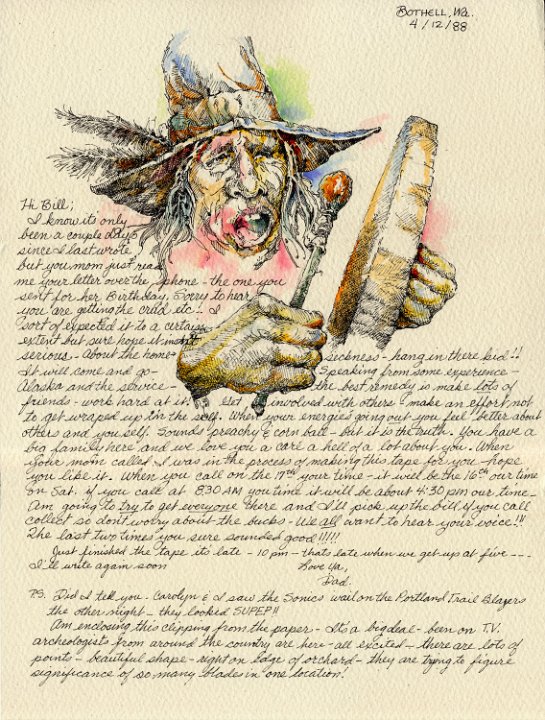 BOTHELL, Wa.
4/12/88
Hi Bill;
I know its only
been a couple days
since I last wrote
but you mom just read
me your letter over the phone - the one you
sent for her Birthday. Sorry to hear
you are getting the crud etc - I
sort of expected it to a certain
extent but sure hope it isn't
serious - About the home sickness - hang in there kid!!
It will come and go - Speaking from some experience -
Alaska and the service - the best remedy is make lots of
friends - work hard at it. Get involved with others - make an effort not
to get wraped up in the self. When your energies going out you feel better about
others and you self. Sounds preachy & corn ball - but it is the truth. You have a
big family here and we love you & care a hell of a lot about you. When
your mom called I was in the process of making this tape for you - hope
you like it. When you call on the 17th your time - it will be the 16th our time
on Sat. if you call at 8:30 AM you time it will be about 4:30 pm our time -
Am going to try to get everyone there and I'll pick up the bill if you call
collect so dont worry about the bucks - We all want to hear your voice!!
The last two times you sure sounded good!!!!!
Just finished the tape its late - 10 pm - thats late when we get up at five ----
I'll write again soon Love Ya,
Dad.
P.S. Did I tell you - Carolyn & I saw the Sonics wail on the Portland Trail Blazers
the other night - they looked SUPER!!
Am enclosing this clipping from the paper - Its a big deal - been on T.V.
archeologists from around the country are here - all excited - there are lots of
points - beautiful shape - right on edge of orchard - they are trying to figure
significance of so many blades in one location!